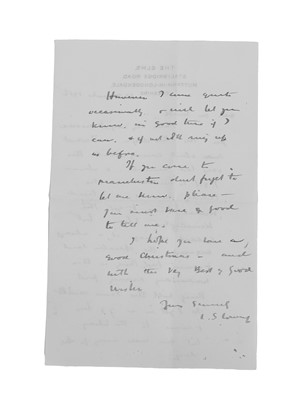 However I come quite
occasionally & will let you
know in good time if I
can. & if not I'll ring up
as before.
If you come to
Manchester don't forget to
let me know, please –
you must have of good
to tell me.
I hope you have a
good Christmas – and
with the very Best of Good
Wishes
Yours sincerely
L. S. Lowry